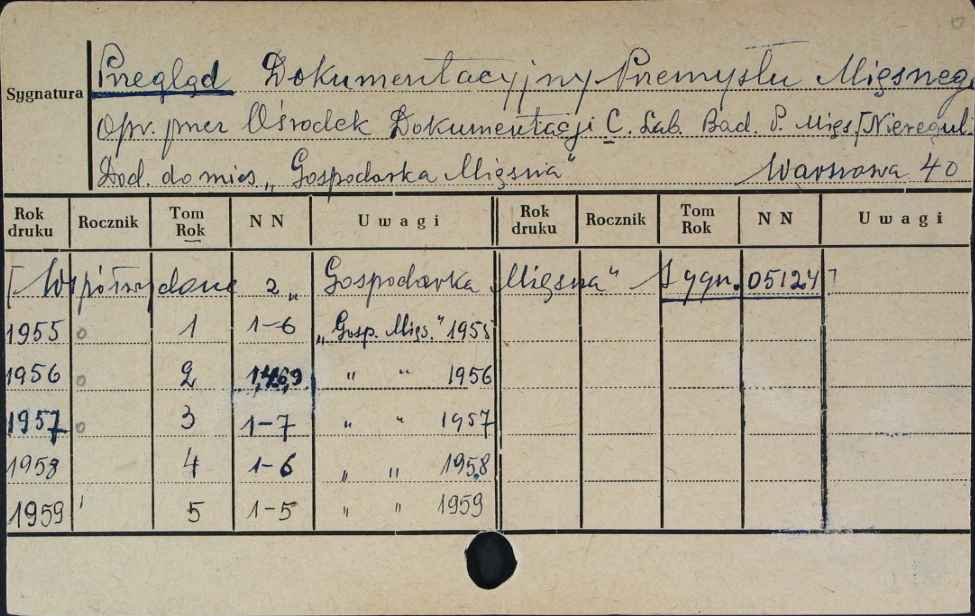 Sygnatura
Przegląd Dokumentacyjny Przemysłu Mięsneg
Opr. przez Ośrodek Dokumentacji C. Lab. Bad. P. Mięs. [Nieregul.
Dod. do mies. „Gospodarka Mięsna" Warszawa 40
Rok druku Rocznik Tom Rok NN Uwagi Rok druku Rocznik Tom Rok NN Uwagi
[Współwydane z „Gospodarka Mięsna" Sygn. 05124]
1955 1 1-6 „Gosp. Mięs." 1955
1956 2 " " 1956
1957 3 1-7 " " 1957
1958 4 1-6 " " 1958
1959 5 1-5 " " 1959